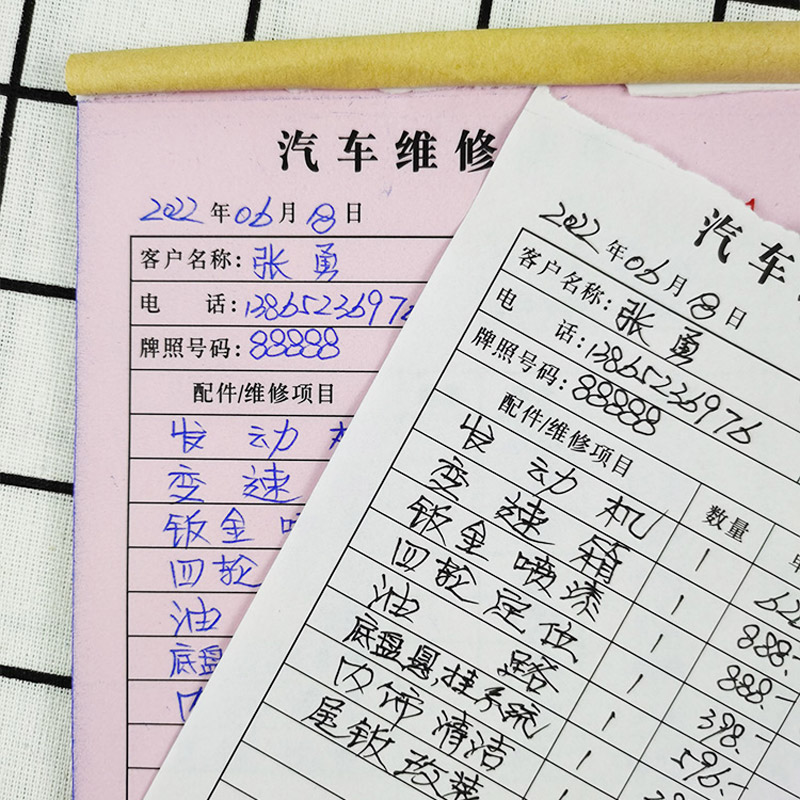 汽车维修
2022年06月18日
客户名称：张勇
电 话：13865236976
牌照号码：88888
配件/维修项目
发动
变速
钣金喷
四轮
油
底盘
内
汽车
2022年06月18日
客户名称：张勇
电 话：13865236976
牌照号码：88888
配件/维修项目 数量
发动机 1
变速箱 1 888.-
钣金喷漆 1 888.-
四轮定位 1 398.-
油路 1 596.-
底盘悬挂系统 1
内饰清洁 1
尾钣改装